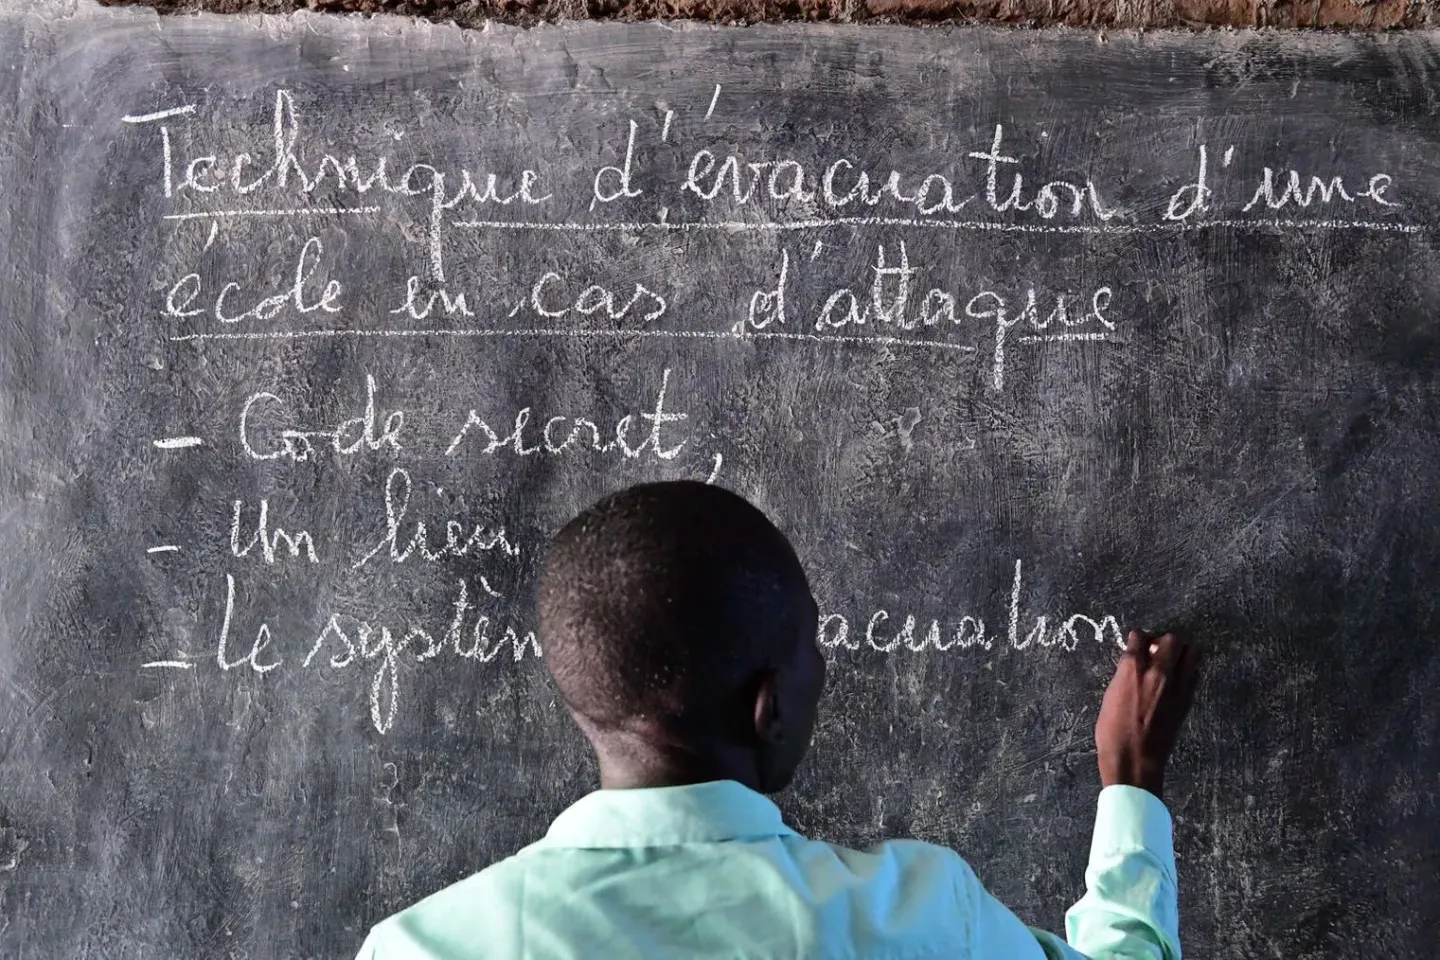 Technique d'évacuation d'une
école en cas d'attaque
- Code secret,
- Un lieu
- le systèm évacuation